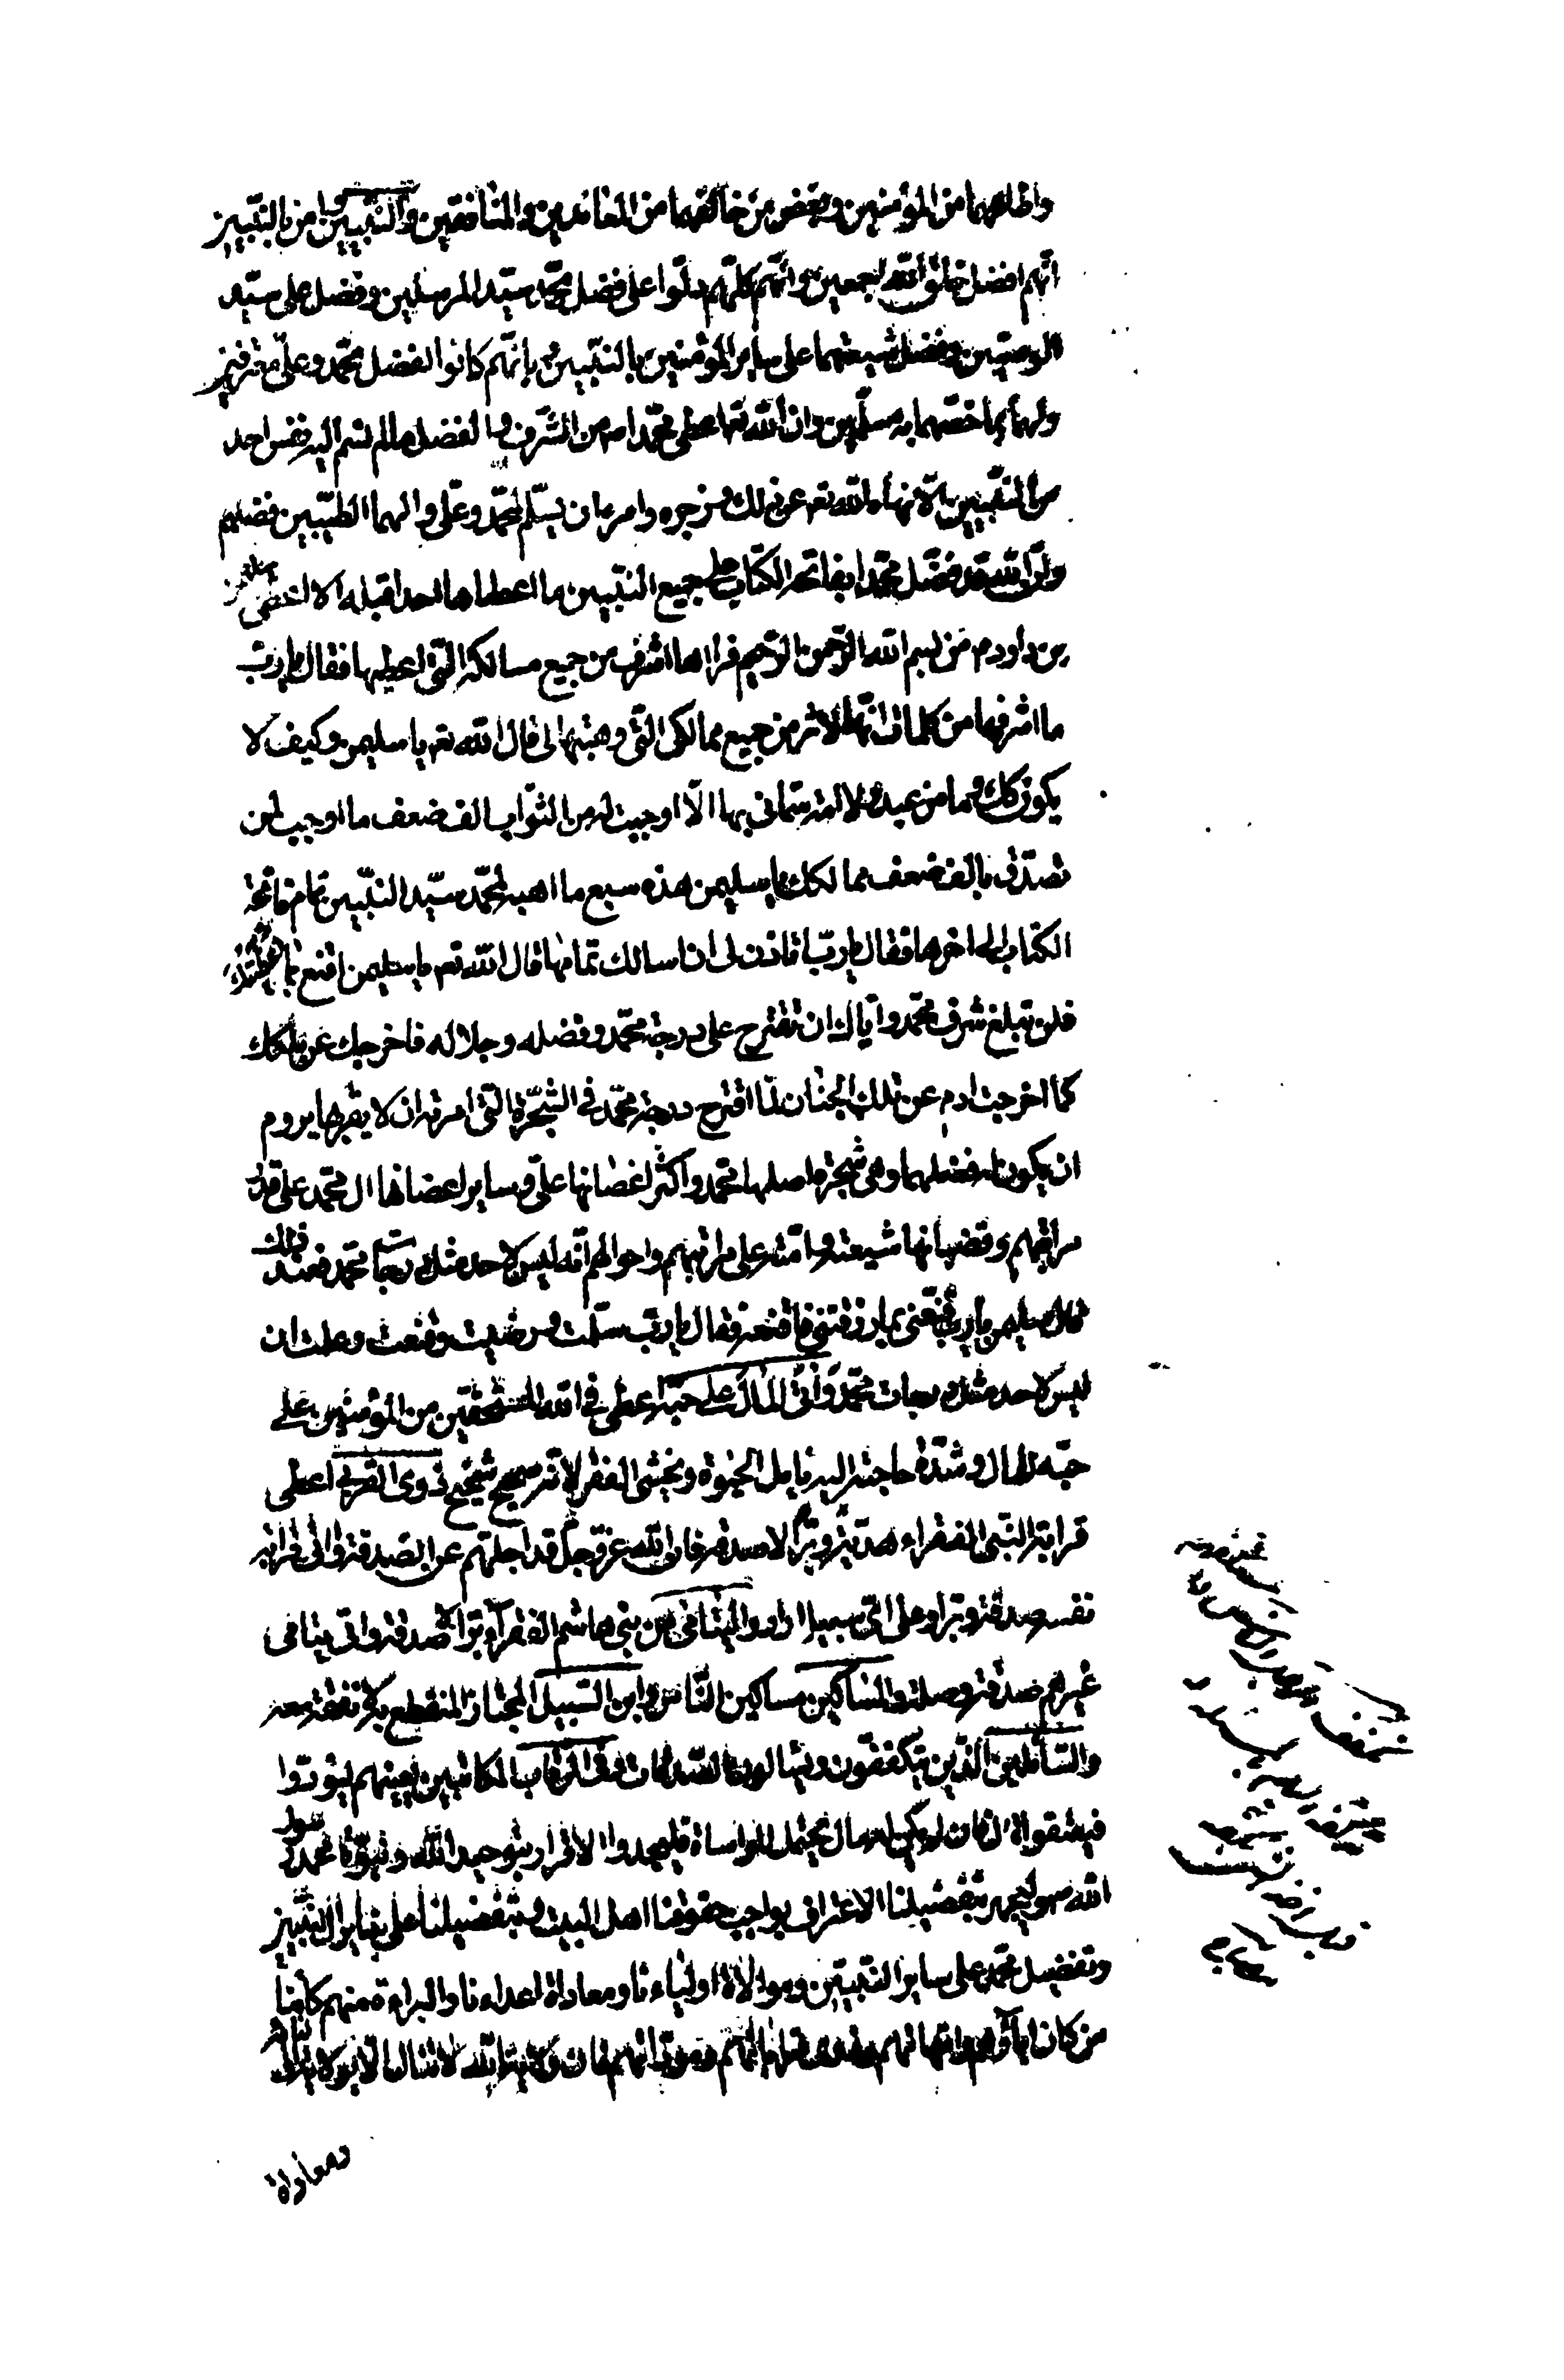 واطاعهما من المؤمنين وبغض من خالفهما من المعاندين والمنافقين والنبيين امن بالنبيين
انهم افضل خلق الله اجمعين وانهم كلهم دلوا على فضل محمد سيد المرسلين وفضل على سيد
الوصيين وفضل شيعتهما على ساير المؤمنين بالنبيين وبانهم كانوا لفضل محمد وعلى معترفين
ولهما بما خصهما به مسلمين وان الله تعا اعطى محمدا ص من الشرف والفضل ما لم تسم اليه نفس احد
من النبيين الا نهاه الله تع عن ذلك وزجره وامره ان يسلم لمحمد وعلى والهما الطيبين فضلهم
وان الله قد فضل محمدا بفاتحة الكتاب على جميع النبيين ما اعطاها احدا قبله الا ما اعطى سليمن
بن داود ع من بسم الله الرحمن الرحيم فراها اشرف من جميع ممالكه التى اعطيها فقال يا رب
ما اشرفها من كلمات انها لاثر من جميع ممالكى التى وهبتها لى قال الله تع يا سليمن وكيف لا
يكون كك وما من عبد ولا امة سمانى بها الا اوجبت له من الثواب الف ضعف ما اوجبت لمن
تصدق بالف ضعف ممالكك يا سليمن هذه سبع ما اهبه لمحمد سيد النبيين تمام فاتحة
الكتاب الى اخرها فقال يا رب اتاذن لى ان اسالك تمامها قال الله تع يا سليمن اقنع بما اعطيتك
فلن تبلغ شرف محمد واياك ان تقترح على درجة محمد وفضله وجلاله فاخرجك عن ملكك
كما اخرجت ادم عن تلك الجنان لما اقترح درجة محمد فى الشجرة التى امرته ان لا يقربها يروم
ان يكون له فضلهما وهى شجرة اصلها محمد واكثر اغصانها على وساير اغصانها ال محمد على قدر
مراتبهم وقضبانها شيعته وامته على مراتبهم واحوالهم انه ليس لاحد مثل درجات محمد فعند ذلك
قال سليمن يا رب قنعنى بما رزقتنى فاقنعه فقال يا رب سلمت ورضيت وقنعت وعلمت ان
ليس لاحد مثل درجات محمد واتى المال على حبه اعطى فى الله المستحقين من المؤمنين على
حبه للمال وشدة حاجته اليه يامل الحيوة ويخشى الفقر لانه صحيح شحيح ذوى القربى اعطى
قرابة النبى الفقراء هدية وبرا لا صدقة فان الله عز وجل قد اجلهم عن الصدقة واتى قرابة
نفسه صدقة وبرا وعلى اى سبيل اراد واليتامى من بنى هاشم الفقراء برا لا صدقة واتى يتامى
غيرهم صدقة وصلة والمساكين مساكين الناس وابن السبيل المجتاز المنقطع به لا نفقة معه
والسائلين الذين يتكففون ويسالون الصدقات وفى الرقاب المكاتبين يعينهم ليؤدوا
فيعتقوا قال فان لم يكن له مال يحتمل المواساة فليجدد الاقرار بتوحيد الله ونبوة محمد رسول
الله ص وليجهر بتفضيلنا الاعتراف بواجب حقوقنا اهل البيت وبتفضيلنا على ساير ال النبيين
وتفضيل محمد على ساير النبيين وموالاة اوليائنا ومعاداة اعدائنا والبراءة منهم كائنا
من كان اباؤهم وامهاتهم وذوى قراباتهم وموداتهم فان ولاية الله لا تنال الا بولاية اوليائه
ومعاداة